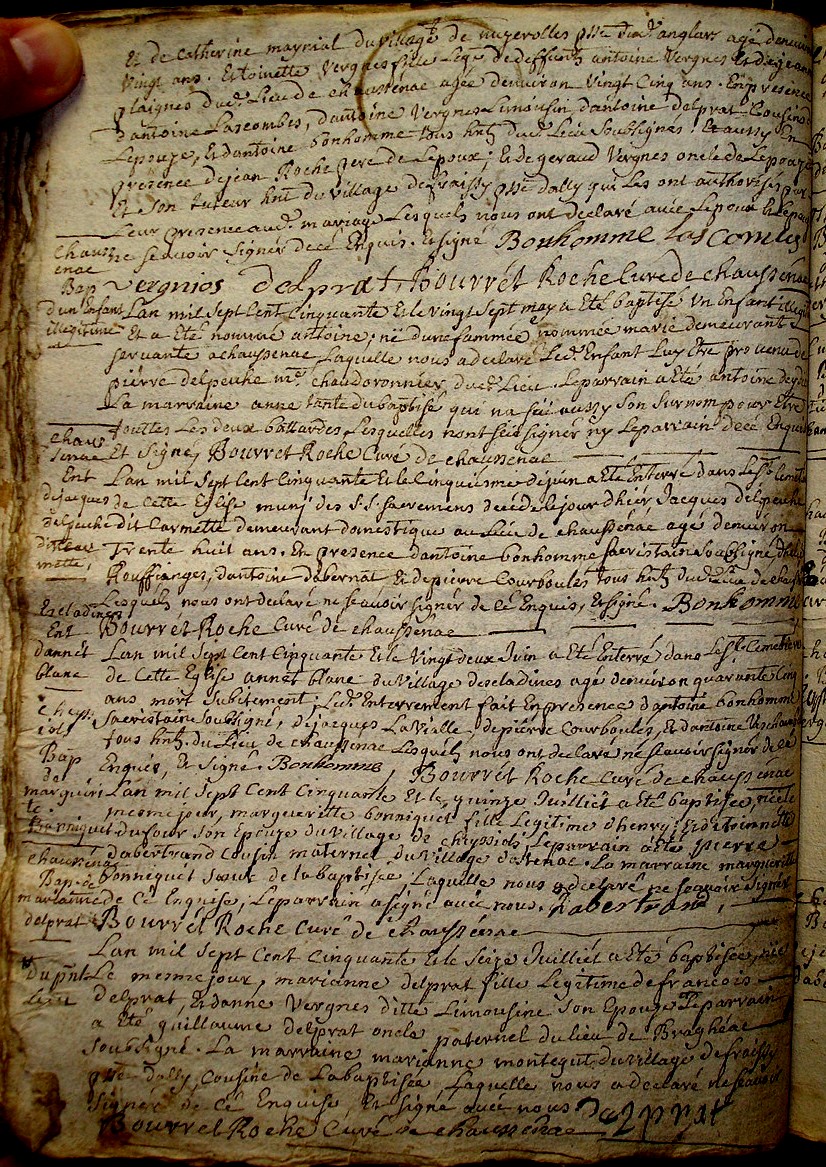 Et de Catherine maynial du village de nuzerolles psse d'anglars agé denviron
vingt ans. Et toinette vergnes fille Legme de deffunts antoine vergnes Et de jeane
plaignes dud. Lieu de chaussenac agée denviron vingt cinq ans. En presence
d'antoine Lascombes, d'antoine vergnes Limousin d'antoine delprat Cousins
Lepouze, Et dantoine bonhomme tous hnts dud. Lieu Soubsignés. Et aussy En
presence de jean Roche pere de Lepoux; Et de geraud vergnes oncle de Lepouze
Et Son tuteur hnt du village de fraissy psse dally qui Les ont authorisés par
Leur presence aud. mariage Lesquels nous ont declaré avec Lepoux Et Lepouze
ne sçavoir Signer de cé Enquis. Et signé Bonhomme Lascombes
vergnios delprat, Bourret Roche Curé de chaussenac
chaussenac
Bap
d'un Enfant
illegitime
Lan mil Sept Cent Cinquante Et le vingt Sept may a Eté baptisé un Enfant illegi
Et a Eté nommé antoine; né d'une fammée nommée marie demeurant
servante a chaussenac Laquelle nous a declaré Led. Enfant Luy Etre provenu de
pierre delpeuhe me chaudoronnier dud. Lieu. Le parrain a Eté antoine
La marraine anne tante du baptisé qui na sçeü aussy Son Surnom pour Etre
touttes Les deux battardes Lesquelles nont sçeü signer ny Le parrain de cé Enquis
Et Signé, Bourret Roche Curé de chaussenac
chaussenac
Ent
de jacques
delpeuhe
dit Carmette
Lan mil Sept Cent Cinquante Et le Cinquiesme de juin a Eté Enterré dans Le Cemet
de Cette Eglise muni des S.S. sacremens decedé Le jour d'hier Jacques delpeuhe
dit Carmette demeurant domestique au Lieu de chaussenac agé denviron
Trente huit ans. En presence dantoine bonhomme sacristain Soubsigné,
Rouffianges, dantoine dabernat Et de pierre Courboules tous hnts dud. Lieu de chauss
Lesquels nous ont declaré ne sçavoir signer de Cé Enquis, Et signé. Bonhomme
Bourret Roche Curé de chaussenac
Escladines
Ent
dannet
blanc
Lan mil Sept Cent Cinquante Et le vingt deux Juin a Eté Enterré dans Le Cemetiere
de Cette Eglise annet blanc du village descladines agé denviron quarante Cinq
ans, mort Subitement; Led. Enterrement fait En presence d'antoine bonhomme
sacristain Soubsigné, de jacques Lavialle, de pierre Courboules, Et dantoine
tous hnts. du Lieu de chaussenac Lesquels nous ont declaré ne sçavoir signer de Cé
Enquis, Et Signé. Bonhomme, Bourret Roche Curé de chaussenac
Bap
de
marguerite
Bonniquet
Lan mil Sept Cent Cinquante Et le, quinze Juilliet a Eté baptisée, née le
mesme jour, margueritte bonniquet fille Legitime d'henry; Et de toinnette
dufour Son Epouze du village de Le parrain a Eté pierre
dabertrand Cousin maternel du village dostenac. La marraine margueritte
bonnequet Sœur de la baptisée Laquelle nous a declaré ne sçavoir Signer
de Cé Enquise, Le parrain a signé avec nous. Dabertrand,
Bourret Roche Curé de chaussenac
chaussenac
Bap. de
marianne
delprat
du pnt
Lieu
Lan mil Sept Cent Cinquante Et le Seize Juilliet a Eté baptisée, née
Le mesme jour, marianne delprat fille Legitime de francois
delprat, Et danne vergnes ditte Limousine Son Epouze Le parrain
a Eté guillaume delprat oncle paternel du lieu de Braghéac
Soubsigné. La marraine marianne montequt du village de fraissy
psse dally, Cousine de La baptisée, Laquelle nous a declaré ne sçavoir
Signer de Cé Enquise, Et signé avec nous Delprat
Bourret Roche Curé de chaussenac